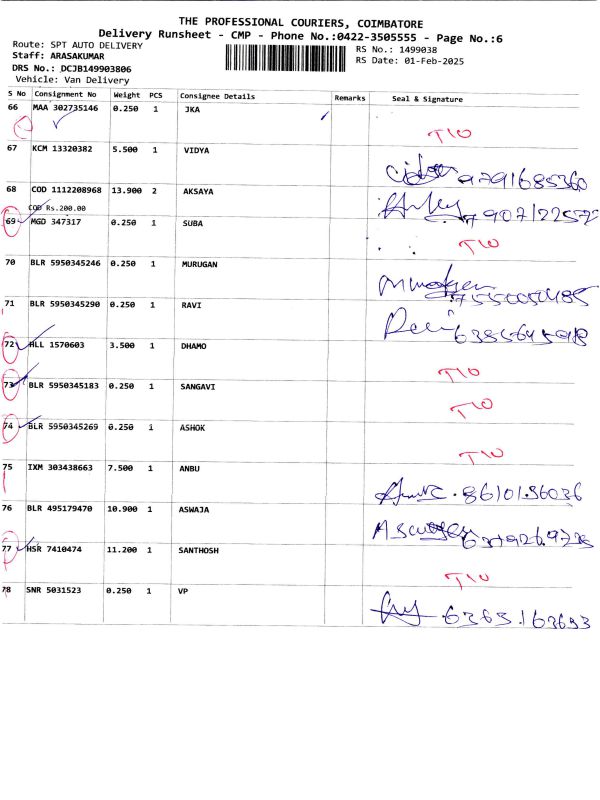 THE PROFESSIONAL COURIERS, COIMBATORE
Delivery Runsheet - CMP - Phone No.:0422-3505555 - Page No.:6
Route: SPT AUTO DELIVERY
Staff: ARASAKUMAR
DRS No.: DCJB149903806
Vehicle: Van Delivery
RS No.: 1499038
RS Date: 01-Feb-2025
S No Consignment No Weight PCS Consignee Details Remarks Seal & Signature
66 MAA 302735146 0.250 1 JKA T10
67 KCM 13320382 5.500 1 VIDYA 9791685360
68 COD 1112208968 13.900 2 AKSAYA
COD Rs.200.00
69 MGD 347317 0.250 1 SUBA T10
70 BLR 5950345246 0.250 1 MURUGAN
71 BLR 5950345290 0.250 1 RAVI
72 ALL 1570603 3.500 1 DHAMO T10
73 BLR 5950345183 0.250 1 SANGAVI T10
74 BLR 5950345269 0.250 1 ASHOK T10
75 IXM 303438663 7.500 1 ANBU 8610136036
76 BLR 495179470 10.900 1 ASWAJA
77 HSR 7410474 11.200 1 SANTHOSH T10
78 SNR 5031523 0.250 1 VP